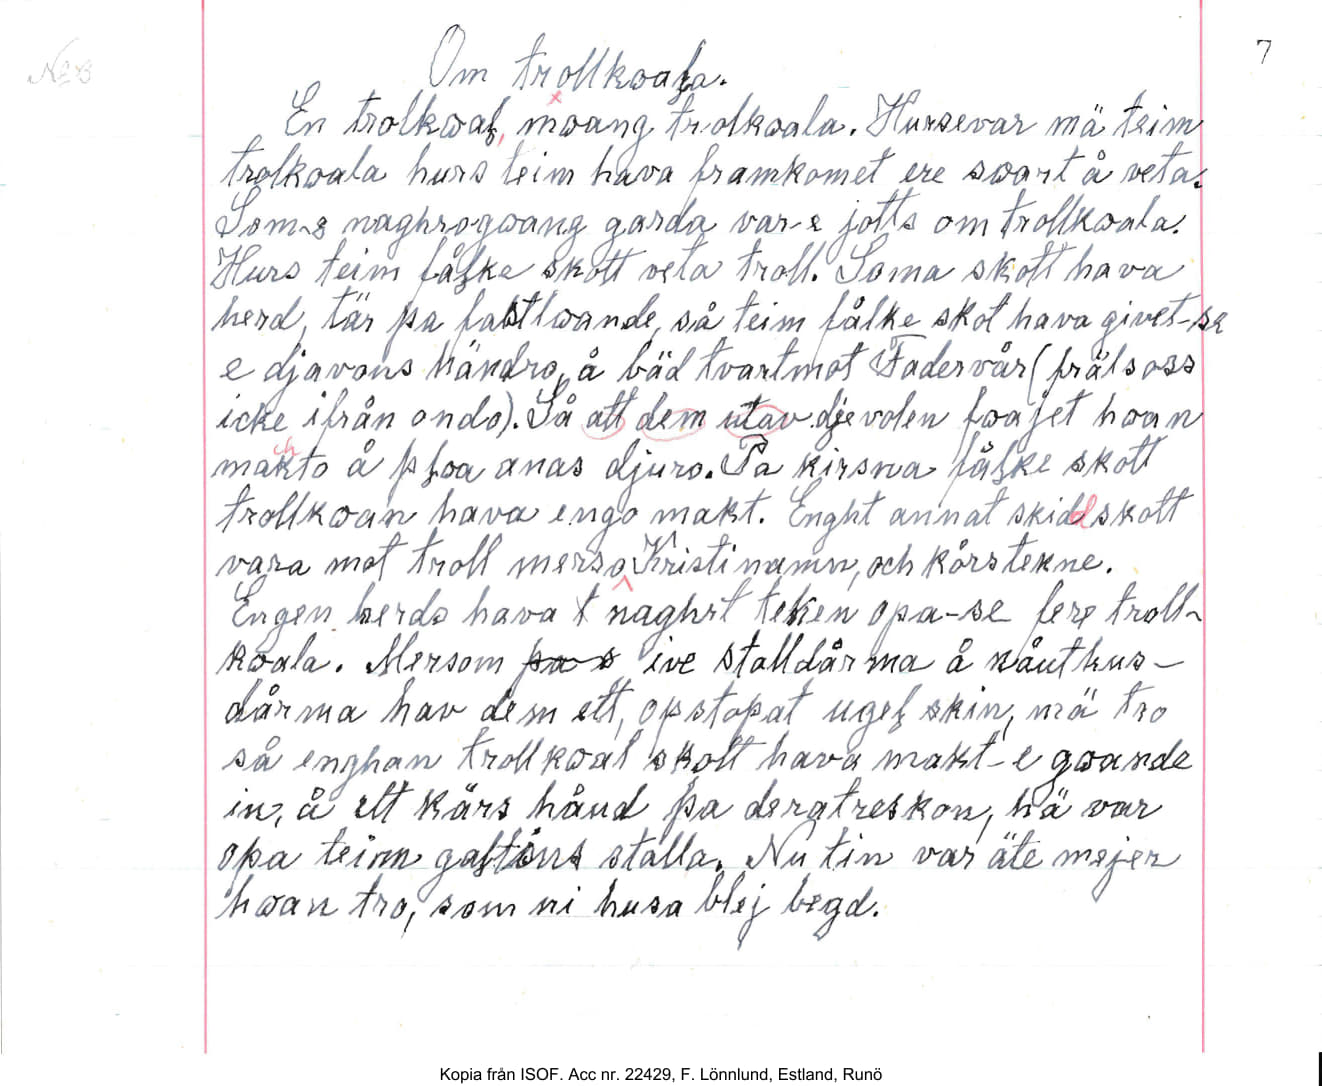 No 3
7
Om trollkwaļa.
En trolkwaļ, mwang trolkwala. Hursevar mä teim
trolkwala hurs teim hava framkomet ere swart å veta.
Som-e naghrogwang garda var-e jotts om trollkwala.
Hurs teim fåļke skott veta troll. Soma skott hava
herd, tär pa fastlwande, så teim fålke skot hava givet-se
e djavons händro, å bäd tvartmot Fadervår (frälsoss
icke ifrån ondo). Så att dem utav djevolen fwajet hwan
makto å pļwa anas djuro. Pa kirswa fåļke skott
trollkwan hava engo makt. Enght annat skidd skott
vara mot troll merso Kristi namn, och kårstekne.
Engen herds hava t naghrt teken opa-se fere troll-
kwala. Mersom pa s ive stalldårma å nåuthus-
dårma hav dem ett, opstopat ugeļskin, mä tro
så enghan trollkwal skott hava makt-e gwande
in, å ett kärs håud pa deratreskon, hä var
opa teim galtåns stalla. Nu tin var äte mejer
hwan tro, som ni husa blej begd.
Kopia från ISOF. Acc nr. 22429, F. Lönnlund, Estland, Runö